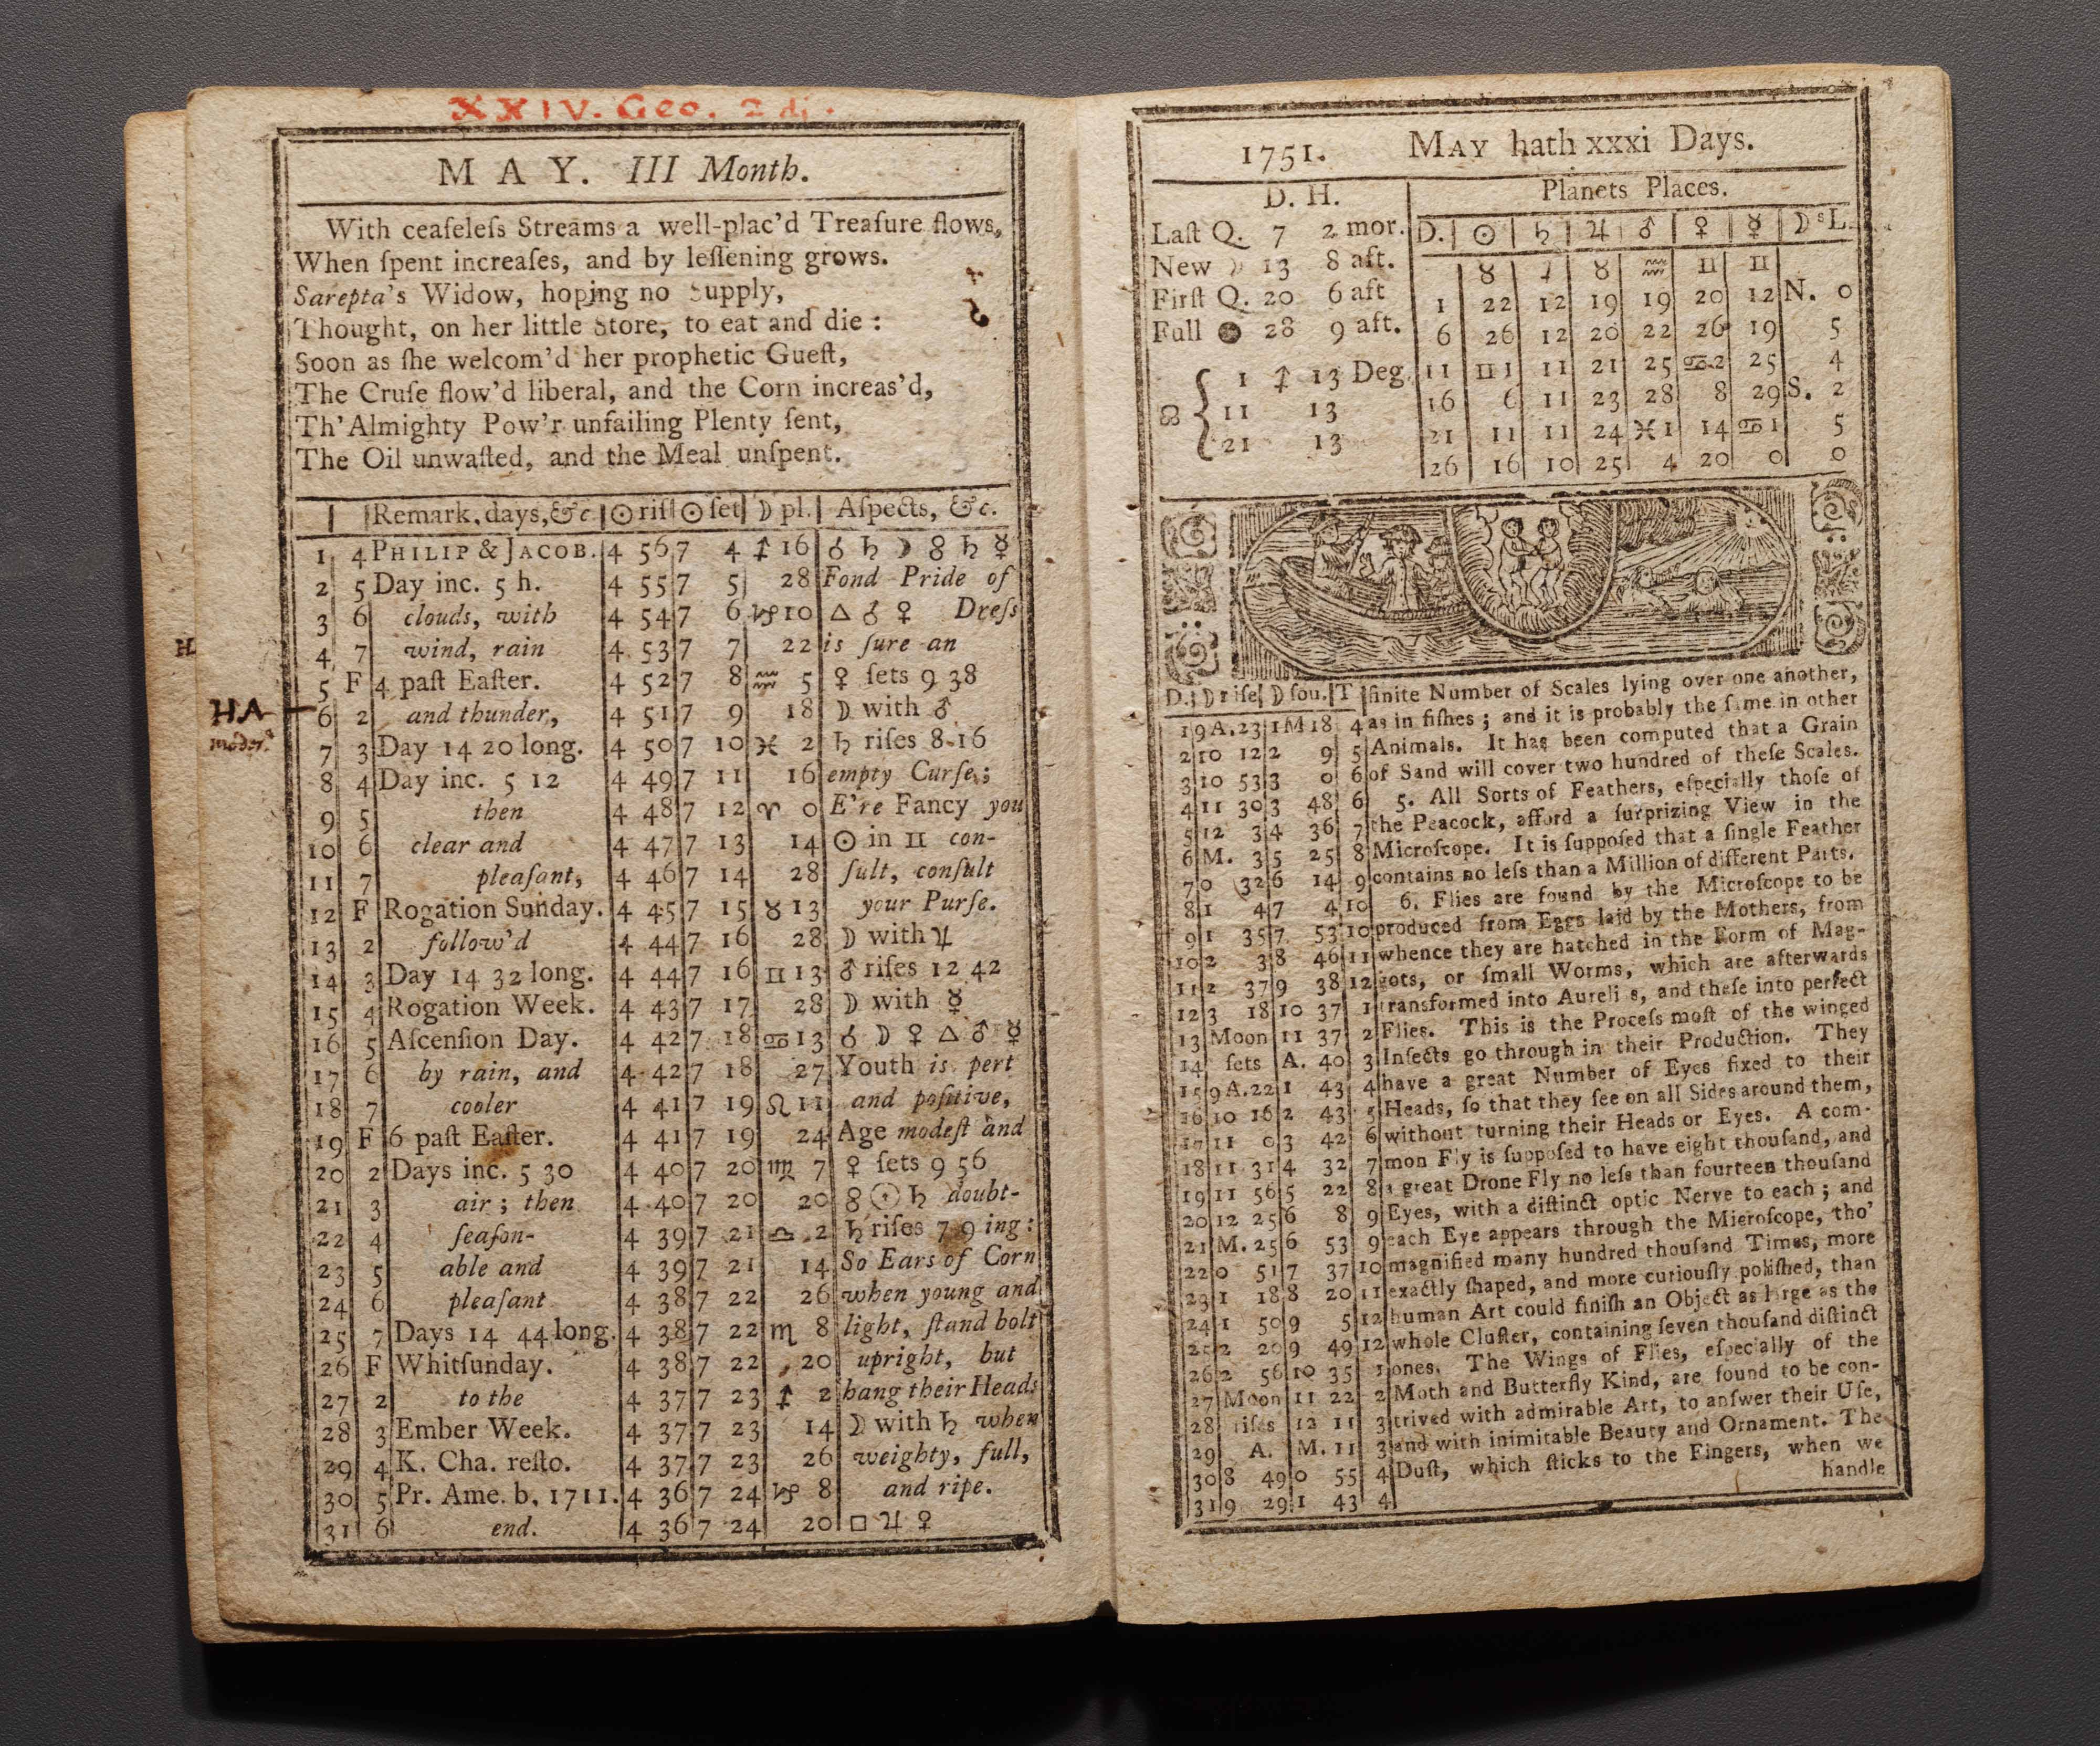 XXIV. Geo. 2 di.
MAY. III Month.
With ceaſeleſs Streams a well-plac'd Treaſure flows,
When ſpent increaſes, and by leſſening grows.
Sarepta's Widow, hoping no Supply,
Thought, on her little Store, to eat and die :
Soon as ſhe welcom'd her prophetic Gueſt,
The Cruſe flow'd liberal, and the Corn increas'd,
Th'Almighty Pow'r unfailing Plenty ſent,
The Oil unwaſted, and the Meal unſpent.
Remark. days, &c. ☉riſ ☉ſet ☽ pl. Aſpects, &c.
1 4 PHILIP & JACOB. 4 56 7 4 ♐ 16 ☌ ♄ ☽ ☍ ♄ ☿
2 5 Day inc. 5 h. 4 55 7 5 28 Fond Pride of
3 6 clouds, with 4 54 7 6 ♑ 10 △ ♂ ♀ Dreſs
H
4 7 wind, rain 4 53 7 7 22 is ſure an
5 F 4 paſt Eaſter. 4 52 7 8 ♒ 5 ♀ ſets 9 38
HA
6 2 and thunder, 4 51 7 9 18 ☽ with ♂
7 3 Day 14 20 long. 4 50 7 10 ♓ 2 ♄ riſes 8 16
8 4 Day inc. 5 12 4 49 7 11 16 empty Curſe;
9 5 then 4 48 7 12 ♈ 0 E're Fancy you
10 6 clear and 4 47 7 13 14 ☉ in ♊ con-
11 7 pleaſant, 4 46 7 14 28 ſult, conſult
12 F Rogation Sunday. 4 45 7 15 ♉ 13 your Purſe.
13 2 follow'd 4 44 7 16 28 ☽ with ♃
14 3 Day 14 32 long. 4 44 7 16 ♊ 13 ♂ riſes 12 42
15 4 Rogation Week. 4 43 7 17 28 ☽ with ☿
16 5 Aſcenſion Day. 4 42 7 18 ♋ 13 ☌ ☽ ♀ △ ♂ ☿
17 6 by rain, and 4 42 7 18 27 Youth is pert
18 7 cooler 4 41 7 19 ♌ 11 and poſitive,
19 F 6 paſt Eaſter. 4 41 7 19 24 Age modeſt and
20 2 Days inc. 5 30 4 40 7 20 ♍ 7 ♀ ſets 9 56
21 3 air; then 4 40 7 20 20 ☍ ☉ ♄ doubt-
22 4 ſeaſon- 4 39 7 21 ♎ 2 ♄ riſes 7 9 ing:
23 5 able and 4 39 7 21 14 So Ears of Corn
24 6 pleaſant 4 38 7 22 26 when young and
25 7 Days 14 44 long. 4 38 7 22 ♏ 8 light, ſtand bolt
26 F Whitſunday. 4 38 7 22 20 upright, but
27 2 to the 4 37 7 23 ♐ 2 hang their Heads
28 3 Ember Week. 4 37 7 23 14 ☽ with ♄ when
29 4 K. Cha. reſto. 4 37 7 23 26 weighty, full,
30 5 Pr. Ame. b. 1711. 4 36 7 24 ♑ 8 and ripe.
31 6 end. 4 36 7 24 20 □ ♃ ♀
1751. MAY hath xxxi Days.
D. H.
Laſt Q. 7 2 mor.
New ☽ 13 8 aft.
Firſt Q. 20 6 aft
Full ● 28 9 aft.
☊ { 1 ♐ 13 Deg.
11 13
21 13
Planets Places.
D. ☉ ♄ ♃ ♂ ♀ ☿ ☽sL.
♉ ♐ ♉ ♒ ♊ ♊
1 22 12 19 19 20 12 N. 0
6 26 12 20 22 26 19 5
11 ♊ 1 11 21 25 ♋ 2 25 4
16 6 11 23 28 8 29 S. 2
21 11 11 24 ♓ 1 14 ♋ 1 5
26 16 10 25 4 20 0 0
D. ☽ riſe ☽ ſou. T
1 9A.23 1M18 4
2 10 12 2 9 5
3 10 53 3 0 6
4 11 30 3 48 6
5 12 3 4 36 7
6 M. 3 5 25 8
7 0 32 6 14 9
8 1 4 7 4 10
9 1 35 7 53 10
10 2 3 8 46 11
11 2 37 9 38 12
12 3 18 10 37 1
13 Moon 11 37 2
14 ſets A. 40 3
15 9A.22 1 43 4
16 10 16 2 43 5
17 11 0 3 42 6
18 11 31 4 32 7
19 11 56 5 22 8
20 12 25 6 8 9
21 M. 25 6 53 9
22 0 51 7 37 10
23 1 18 8 20 11
24 1 50 9 5 12
25 2 20 9 49 12
26 2 56 10 35 1
27 Moon 11 22 2
28 riſes 12 11 3
29 A. M. 11 3
30 8 49 0 55 4
31 9 29 1 43 4
finite Number of Scales lying over one another,
as in fiſhes; and it is probably the ſame in other
Animals. It has been computed that a Grain
of Sand will cover two hundred of theſe Scales.
5. All Sorts of Feathers, eſpecially thoſe of
the Peacock, afford a ſurprizing View in the
Microſcope. It is ſuppoſed that a ſingle Feather
contains no leſs than a Million of different Parts.
6. Flies are found by the Microſcope to be
produced from Eggs laid by the Mothers, from
whence they are hatched in the Form of Mag-
gots, or ſmall Worms, which are afterwards
transformed into Aureli s, and theſe into perfect
Flies. This is the Proceſs moſt of the winged
Inſects go through in their Production. They
have a great Number of Eyes fixed to their
Heads, ſo that they ſee on all Sides around them,
without turning their Heads or Eyes. A com-
mon Fly is ſuppoſed to have eight thouſand, and
a great Drone Fly no leſs than fourteen thouſand
Eyes, with a diſtinct optic Nerve to each; and
each Eye appears through the Microſcope, tho'
magnified many hundred thouſand Times, more
exactly ſhaped, and more curiouſly poliſhed, than
human Art could finiſh an Object as large as the
whole Cluſter, containing ſeven thouſand diſtinct
ones. The Wings of Flies, eſpecially of the
Moth and Butterfly Kind, are found to be con-
trived with admirable Art, to anſwer their Uſe,
and with inimitable Beauty and Ornament. The
Duſt, which ſticks to the Fingers, when we
handle